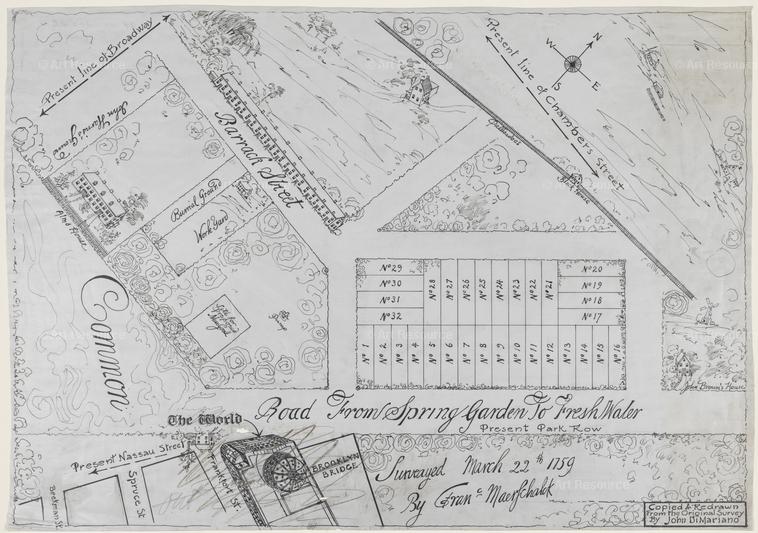 Present line of Broadway
Barrach Street
Burrial Ground
Work Yard
Alms House
Common
Present line of Chambers Street
N
W
E
S
John Brown's House
Nº29
Nº30
Nº31
Nº32
Nº28
Nº27
Nº26
Nº25
Nº24
Nº23
Nº22
Nº21
Nº20
Nº19
Nº18
Nº17
Nº1
Nº2
Nº3
Nº4
Nº5
Nº6
Nº7
Nº8
Nº9
Nº10
Nº11
Nº12
Nº13
Nº14
Nº15
Nº16
Road From Spring Garden To Fresh Water
Present Park Row
The World
Present Nassau Street
Beekman St.
Spruce St
Frankfort St.
BROOKLYN
BRIDGE
Surveyed March 22th 1759
By Franc Maerschalck
Copied & Redrawn
From the Original Survey
By John DiMariano
© Art Resource